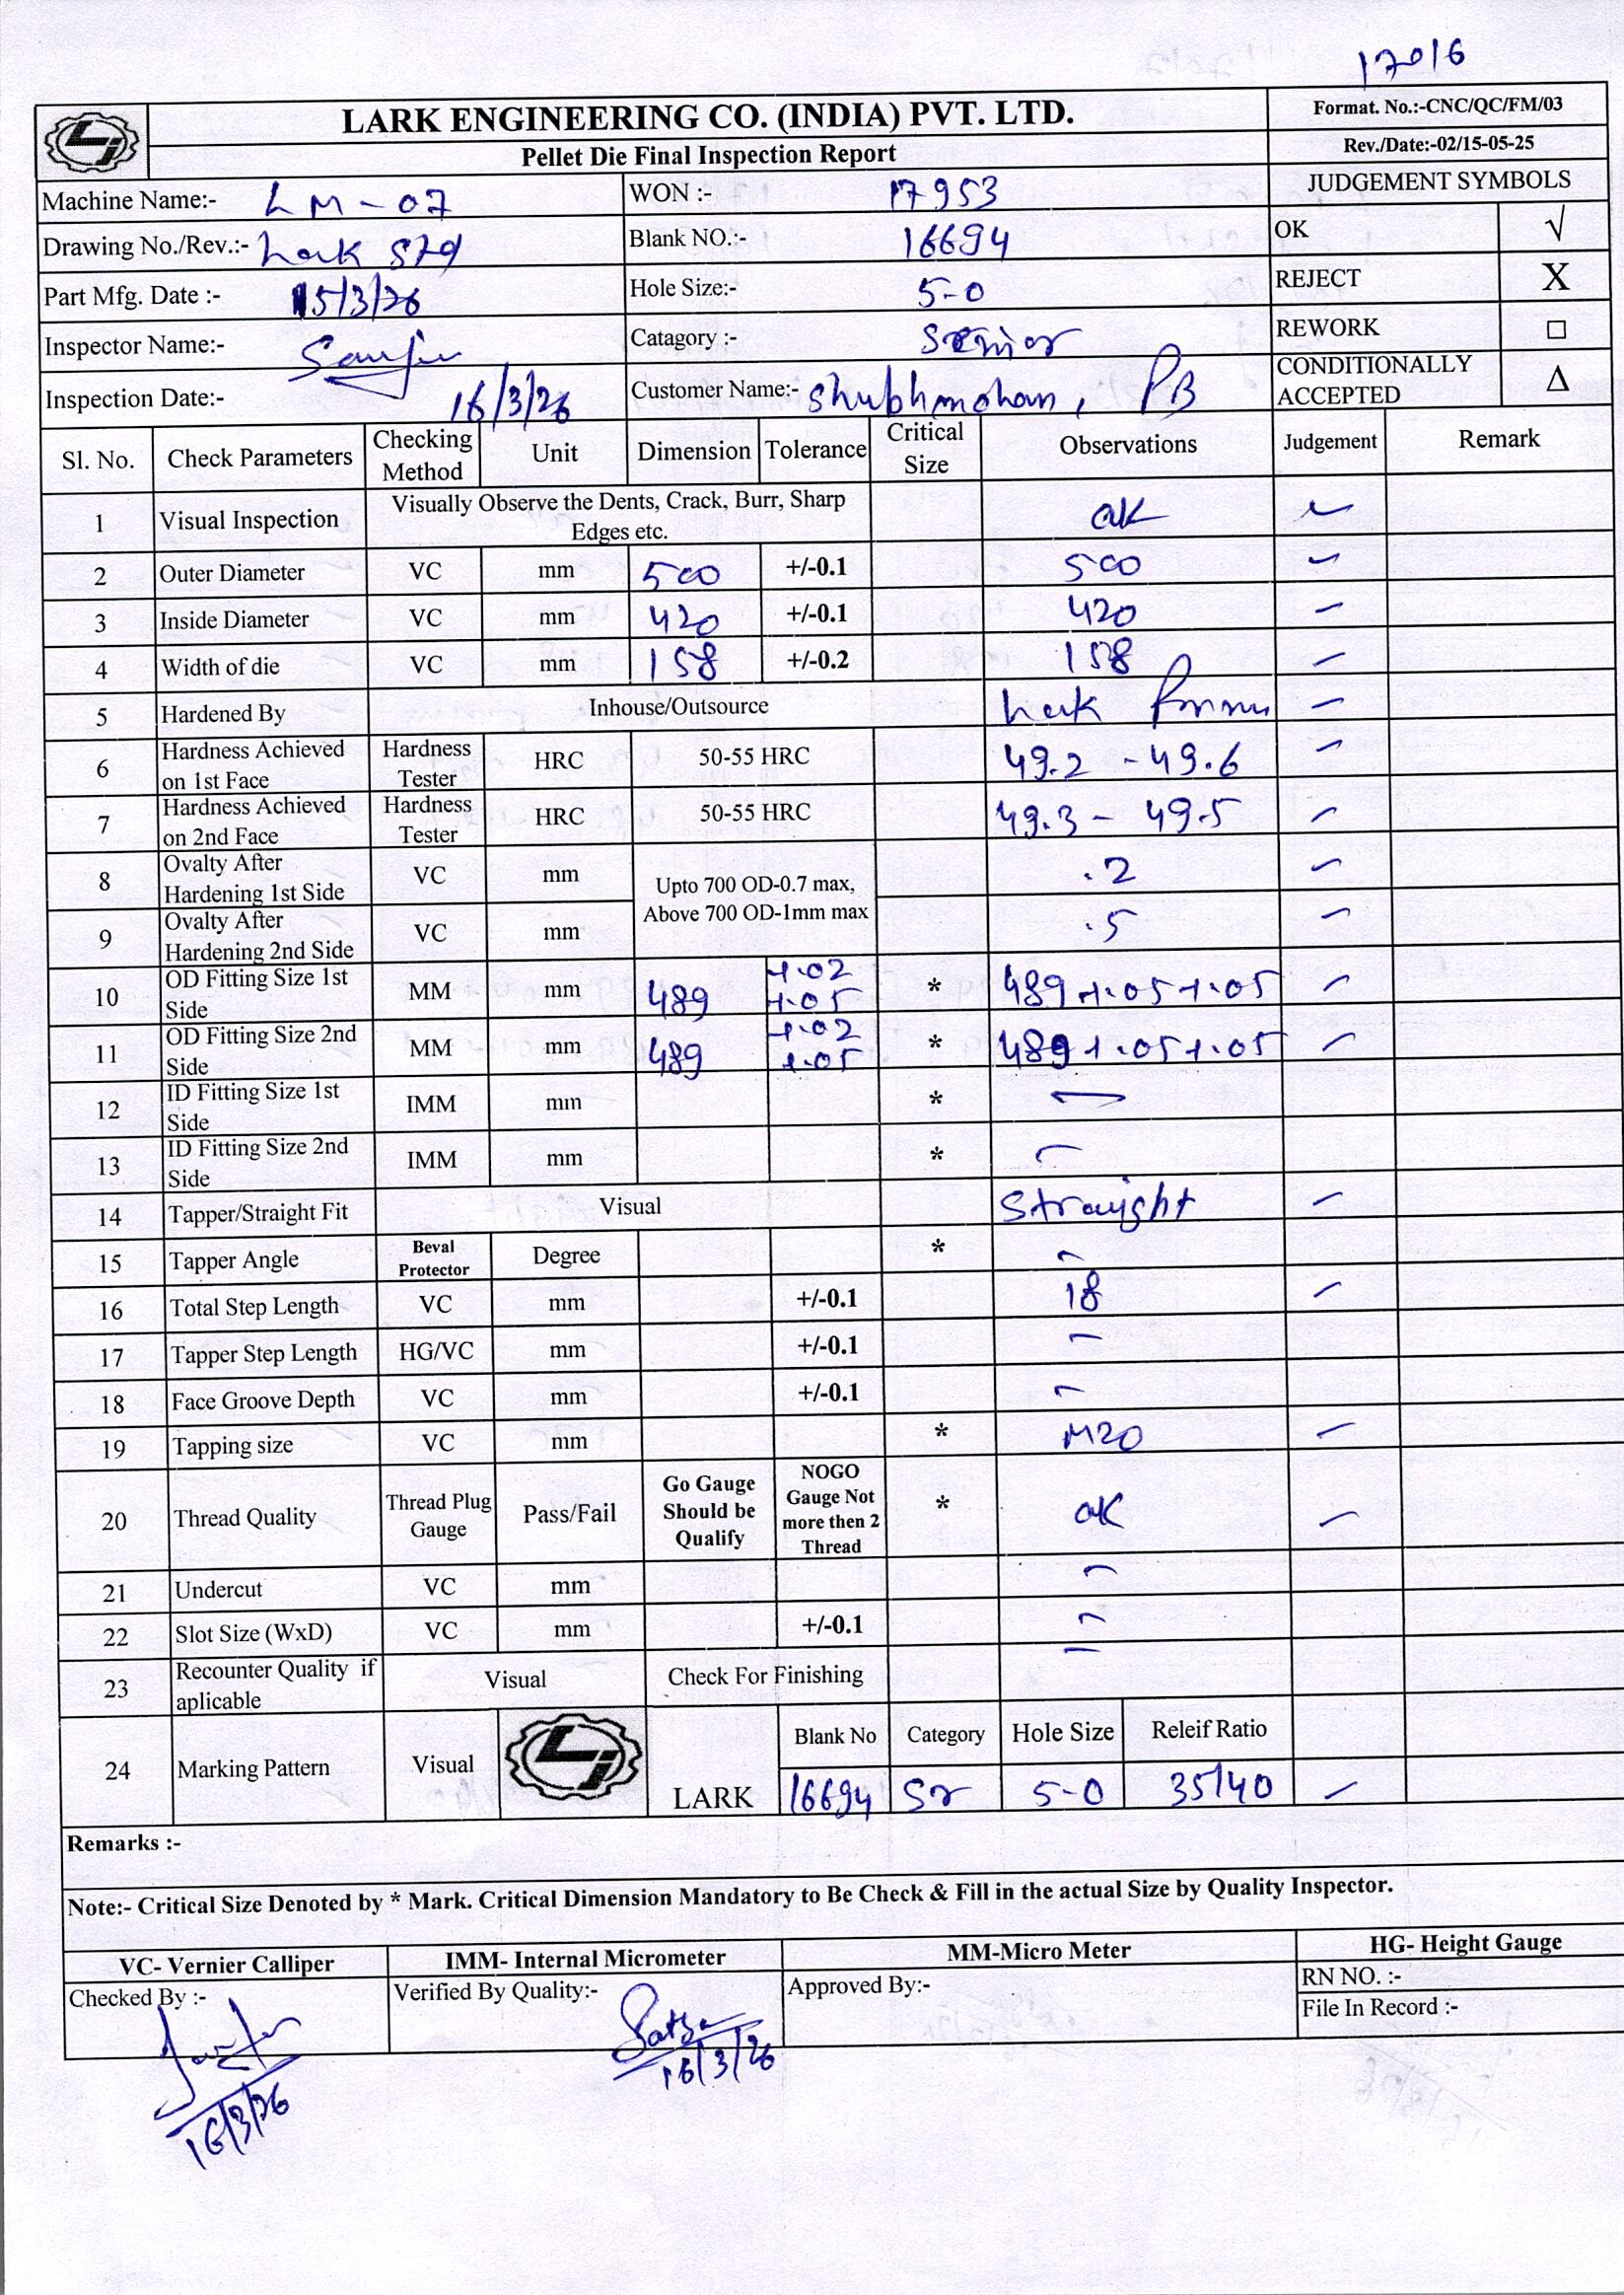 17016
LARK ENGINEERING CO. (INDIA) PVT. LTD.
Format. No.:-CNC/QC/FM/03
Pellet Die Final Inspection Report
Rev./Date:-02/15-05-25
Machine Name:- LM-07 WON :- 17953 JUDGEMENT SYMBOLS
Drawing No./Rev.:- Lark std Blank NO.:- 16694 OK √
Part Mfg. Date :- 15/3/26 Hole Size:- 5-0 REJECT X
Inspector Name:- Catagory :- Senior REWORK □
Inspection Date:- 16/3/26 Customer Name:- Shubhmohan, PB CONDITIONALLY ACCEPTED Δ
Sl. No. Check Parameters Checking Method Unit Dimension Tolerance Critical Size Observations Judgement Remark
1 Visual Inspection Visually Observe the Dents, Crack, Burr, Sharp Edges etc. OK
2 Outer Diameter VC mm 500 +/-0.1 500
3 Inside Diameter VC mm 420 +/-0.1 420
4 Width of die VC mm 158 +/-0.2 158
5 Hardened By Inhouse/Outsource Lark
6 Hardness Achieved on 1st Face Hardness Tester HRC 50-55 HRC 49.2 - 49.6
7 Hardness Achieved on 2nd Face Hardness Tester HRC 50-55 HRC 49.3 - 49.5
8 Ovalty After Hardening 1st Side VC mm Upto 700 OD-0.7 max, Above 700 OD-1mm max .2
9 Ovalty After Hardening 2nd Side VC mm .5
10 OD Fitting Size 1st Side MM mm 489 +.02 +.05 * 489+.05+.05
11 OD Fitting Size 2nd Side MM mm 489 +.02 +.05 * 489+.05+.05
12 ID Fitting Size 1st Side IMM mm *
13 ID Fitting Size 2nd Side IMM mm *
14 Tapper/Straight Fit Visual Straight
15 Tapper Angle Beval Protector Degree *
16 Total Step Length VC mm +/-0.1 18
17 Tapper Step Length HG/VC mm +/-0.1
18 Face Groove Depth VC mm +/-0.1
19 Tapping size VC mm * M20
20 Thread Quality Thread Plug Gauge Pass/Fail Go Gauge Should be Qualify NOGO Gauge Not more then 2 Thread * OK
21 Undercut VC mm
22 Slot Size (WxD) VC mm +/-0.1
23 Recounter Quality if aplicable Visual Check For Finishing
24 Marking Pattern Visual LARK Blank No Category Hole Size Releif Ratio
16694 Sr 5-0 35/40
Remarks :-
Note:- Critical Size Denoted by * Mark. Critical Dimension Mandatory to Be Check & Fill in the actual Size by Quality Inspector.
VC- Vernier Calliper IMM- Internal Micrometer MM-Micro Meter HG- Height Gauge
Checked By :- Verified By Quality:- Approved By:- RN NO. :-
File In Record :-
16/3/26
16/3/26